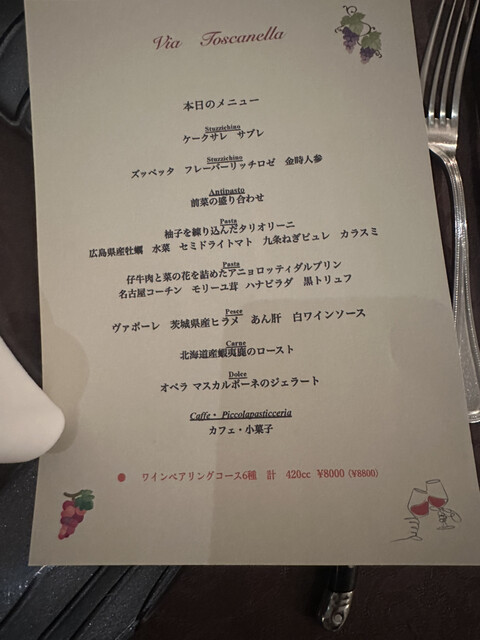 Via Toscanella
本日のメニュー
Stuzzichino
ケークサレ サブレ
Stuzzichino
ズッペッタ フレーバーリッチロゼ 金時人参
Antipasto
前菜の盛り合わせ
Pasta
柚子を練り込んだタリオリーニ
広島県産牡蠣 水菜 セミドライトマト 九条ねぎピュレ カラスミ
Pasta
仔牛肉と菜の花を詰めたアニョロッティダルプリン
名古屋コーチン モリーユ茸 ハナビラダ 黒トリュフ
Pesce
ヴァポーレ 茨城県産ヒラメ あん肝 白ワインソース
Carne
北海道産蝦夷鹿のロースト
Dolce
オペラ マスカルポーネのジェラート
Caffe・Piccolapasticceria
カフェ・小菓子
● ワインペアリングコース6種 計 420cc ¥8000 (¥8800)